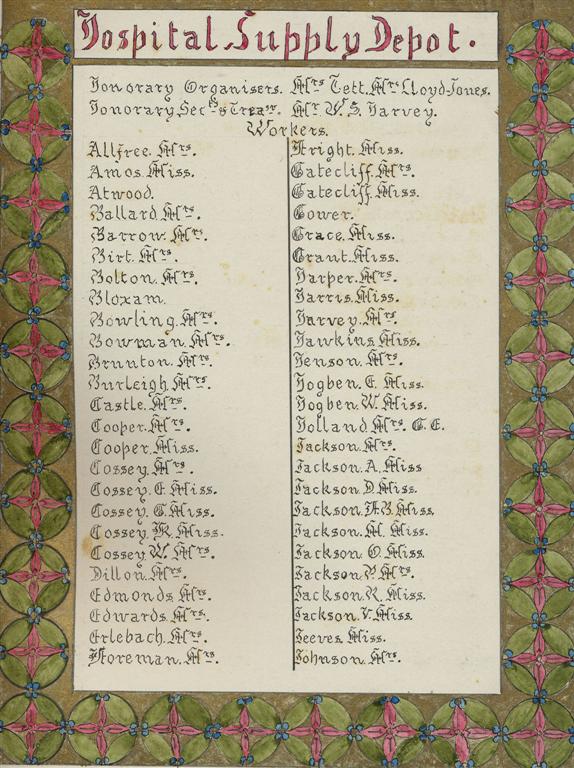 Hospital Supply Depot.
Honorary Organisers. Mrs Tett. Mrs Lloyd-Jones.
Honorary Secty & Treasr. Mr W. S. Harvey.
Workers.
Allfree. Mrs.
Amos. Miss.
Atwood.
Ballard. Mrs.
Barrow. Mrs.
Birt. Mrs.
Bolton. Mrs.
Bloxam.
Bowling. Mrs.
Bowman. Mrs.
Brunton. Mrs.
Burleigh. Mrs.
Castle. Mrs.
Cooper. Mrs.
Cooper. Miss.
Cossey. Mrs.
Cossey. E. Miss.
Cossey. Miss.
Cossey. Miss.
Cossey. W. Mrs.
Dillon. Mrs.
Edmonds. Mrs.
Edwards. Mrs.
Erlebach. Mrs.
Foreman. Mrs.
Fright. Miss.
Gatecliff. Mrs.
Gatecliff. Miss.
Gower.
Grace. Miss.
Grant. Miss.
Harper. Mrs.
Harris. Miss.
Harvey. Mrs.
Hawkins. Miss.
Henson. Mrs.
Hogben. E. Miss.
Hogben. W. Miss.
Holland. Mrs. E.
Jackson. Mrs.
Jackson. A. Miss
Jackson. D. Miss.
Jackson. Miss.
Jackson. M. Miss.
Jackson. O. Miss.
Jackson. P. Mrs.
Jackson. R. Miss.
Jackson. V. Miss.
Jeeves. Miss.
Johnson. Mrs.